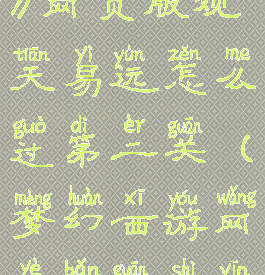 》网页版观
tiān yì yuǎn zěn me
天易远怎么
guò dì èr guān
过第二关（
mèng huàn xī yóu wǎng
梦幻西游网
yè bǎn guān shì yīn